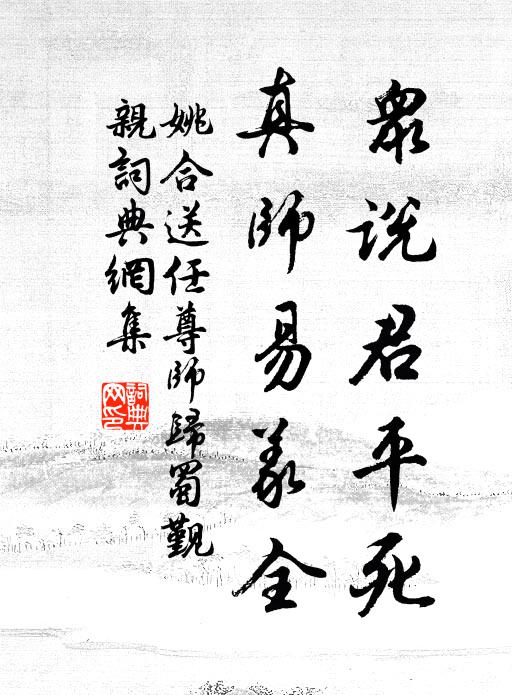 眾說君平死
真師易義全
姚合送任尊師歸蜀覲
親詞典網集
詞典網印